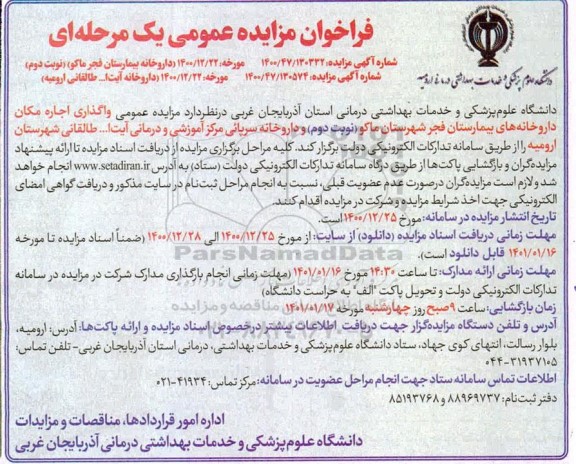 فراخوان مزایده عمومی یک مرحله‌ای
شماره آگهی مزایده: ۱۴۰۰/۴۷/۱۳۰۳۳۲ مورخه: ۱۴۰۰/۱۲/۲۲ (داروخانه بیمارستان فجر ماکو) (نوبت دوم)
شماره آگهی مزایده: ۱۴۰۰/۴۷/۱۳۰۵۷۴ مورخه: ۱۴۰۰/۱۲/۲۲ (داروخانه آیت‌ا... طالقانی ارومیه)
دانشگاه علوم‌پزشکی و خدمات بهداشتی درمانی استان آذربایجان غربی درنظردارد مزایده عمومی واگذاری اجاره مکان
داروخانه‌های بیمارستان فجر شهرستان ماکو (نوبت دوم) و داروخانه سرپائی مرکز آموزشی و درمانی آیت‌ا... طالقانی شهرستان
ارومیه را از طریق سامانه تدارکات الکترونیکی دولت برگزار کند. کلیه مراحل برگزاری مزایده از دریافت اسناد مزایده تا ارائه پیشنهاد
مزایده‌گران و بازگشایی پاکت‌ها از طریق درگاه سامانه تدارکات الکترونیکی دولت (ستاد) به آدرس www.setadiran.ir انجام خواهد
شد و لازم است مزایده‌گران درصورت عدم عضویت قبلی، نسبت به انجام مراحل ثبت‌نام در سایت مذکور و دریافت گواهی امضای
الکترونیکی جهت اخذ شرایط مزایده و شرکت در مزایده اقدام کنند.
تاریخ انتشار مزایده در سامانه: مورخ ۱۴۰۰/۱۲/۲۵ است.
مهلت زمانی دریافت اسناد مزایده (دانلود) از سایت: از مورخ ۱۴۰۰/۱۲/۲۵ الی ۱۴۰۰/۱۲/۲۸ (ضمناً اسناد مزایده تا مورخه
۱۴۰۱/۰۱/۱۶ قابل دانلود است).
ParsNamadData
مهلت زمانی ارائه مدارک: تا ساعت ۱۴:۳۰ مورخ ۱۴۰۱/۰۱/۱۶ (مهلت زمانی انجام بارگذاری مدارک شرکت در مزایده در سامانه
تدارکات الکترونیکی دولت و تحویل پاکت "الف" به حراست دانشگاه)
زمان بازگشایی: ساعت ۹ صبح روز چهارشنبه مورخه ۱۴۰۱/۰۱/۱۷
آدرس و تلفن دستگاه مزایده‌گزار جهت دریافت اطلاعات بیشتر درخصوص اسناد مزایده و ارائه پاکت‌ها: آدرس: ارومیه،
بلوار رسالت، انتهای کوی جهاد، ستاد دانشگاه علوم‌پزشکی و خدمات بهداشتی، درمانی استان آذربایجان غربی- تلفن تماس:
۰۴۴-۳۱۹۳۷۱۰۵
اطلاعات تماس سامانه ستاد جهت انجام مراحل عضویت در سامانه: مرکز تماس: ۴۱۹۳۴-۰۲۱
دفتر ثبت‌نام: ۸۸۹۶۹۷۳۷ و ۸۵۱۹۳۷۶۸
اداره امور قراردادها، مناقصات و مزایدات
دانشگاه علوم‌پزشکی و خدمات بهداشتی درمانی آذربایجان غربی